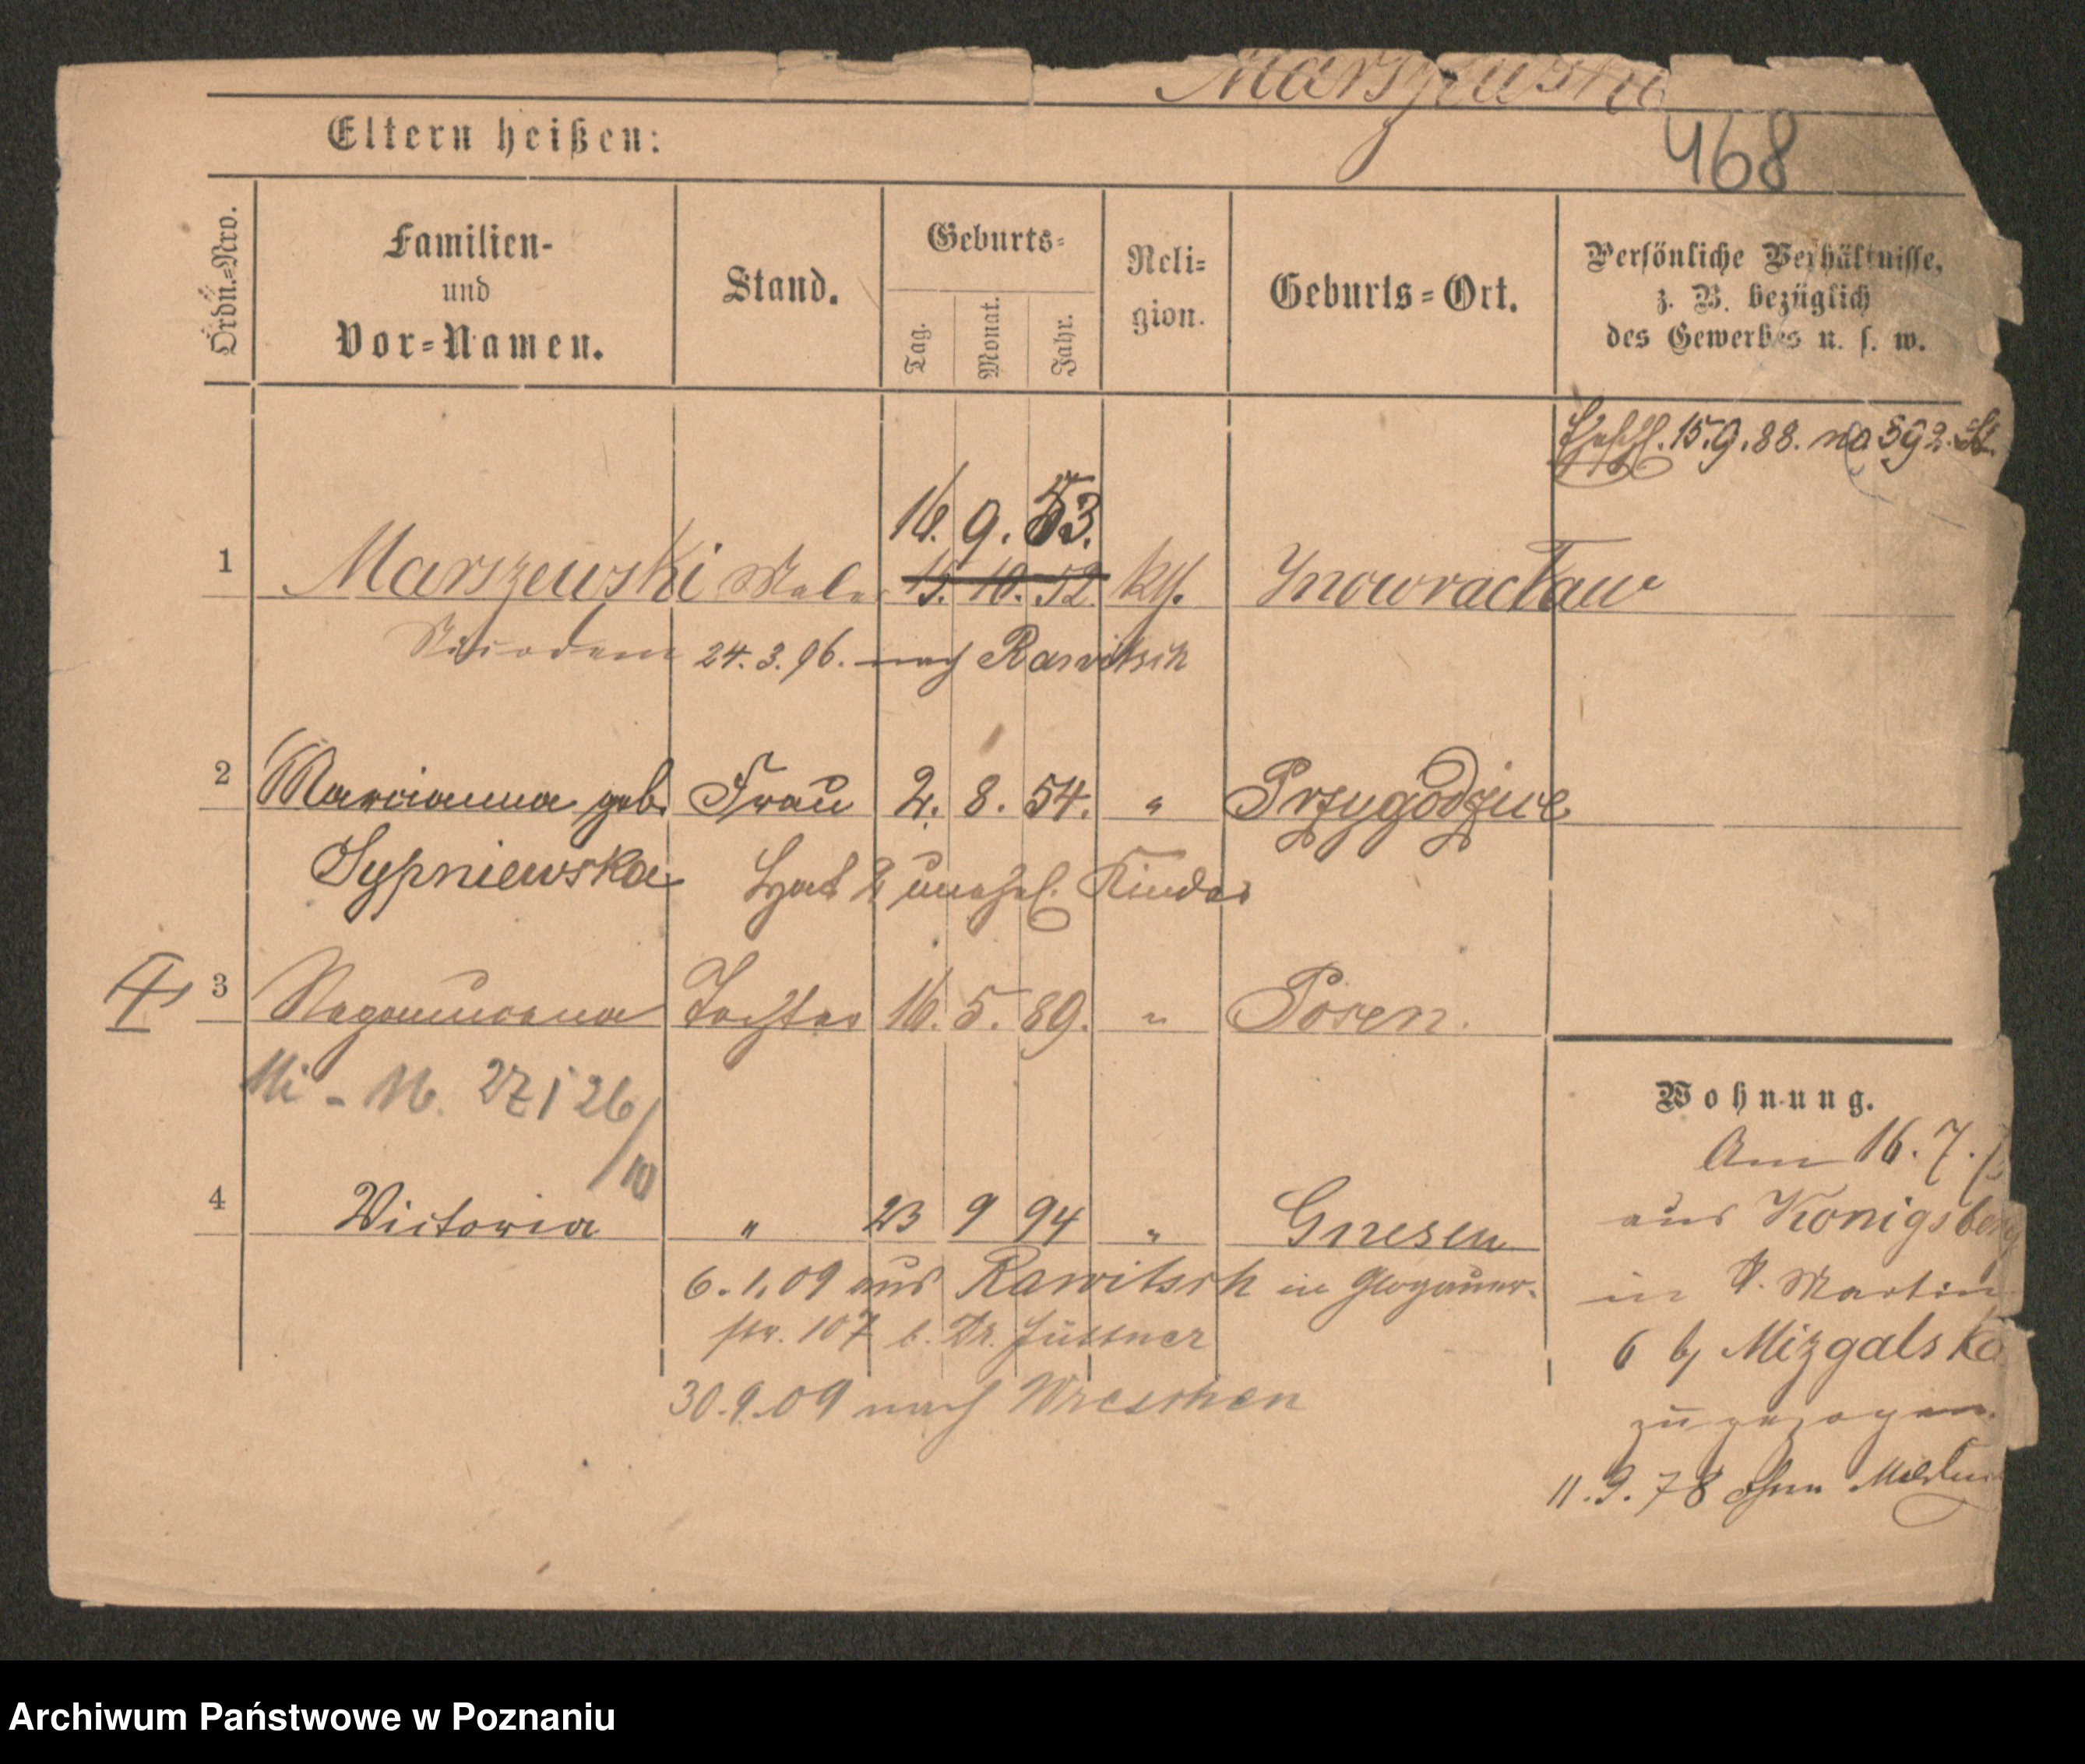 Marszewski
468
Eltern heißen:
Ordn.=Nro.
Familien-
und
Vor=Namen.
Stand.
Geburts=
Tag.
Monat.
Jahr.
Reli=
gion.
Geburts=Ort.
Persönliche Verhältnisse,
z. B. bezüglich
des Gewerbes u. s. w.
15.9.88. no 592.
16. 9. 53.
1 Marszewski Maler 15. 10. 52. kth. Inowracław
Nicodem 24.3.96. nach Rawitsch
2 Marianna geb. Frau 2. 8. 54. " Przygodzice
Sypniewska Hat 2 unehel. Kinder
3 Tochter 16. 5. 89. " Posen.
27 / 26/10
4 Victoria " 23 9 94 " Gnesen
6.1.09 aus Rawitsch in Glogauer-
str. 107 b. Dr. Jüttner
30.9.09 nach Wreschen
Wohnung.
Am 16. 7.
aus Königsberg
in St. Martin
6 bj Mizgalska
zugezogen.
11.9.78 ohne
Archiwum Państwowe w Poznaniu